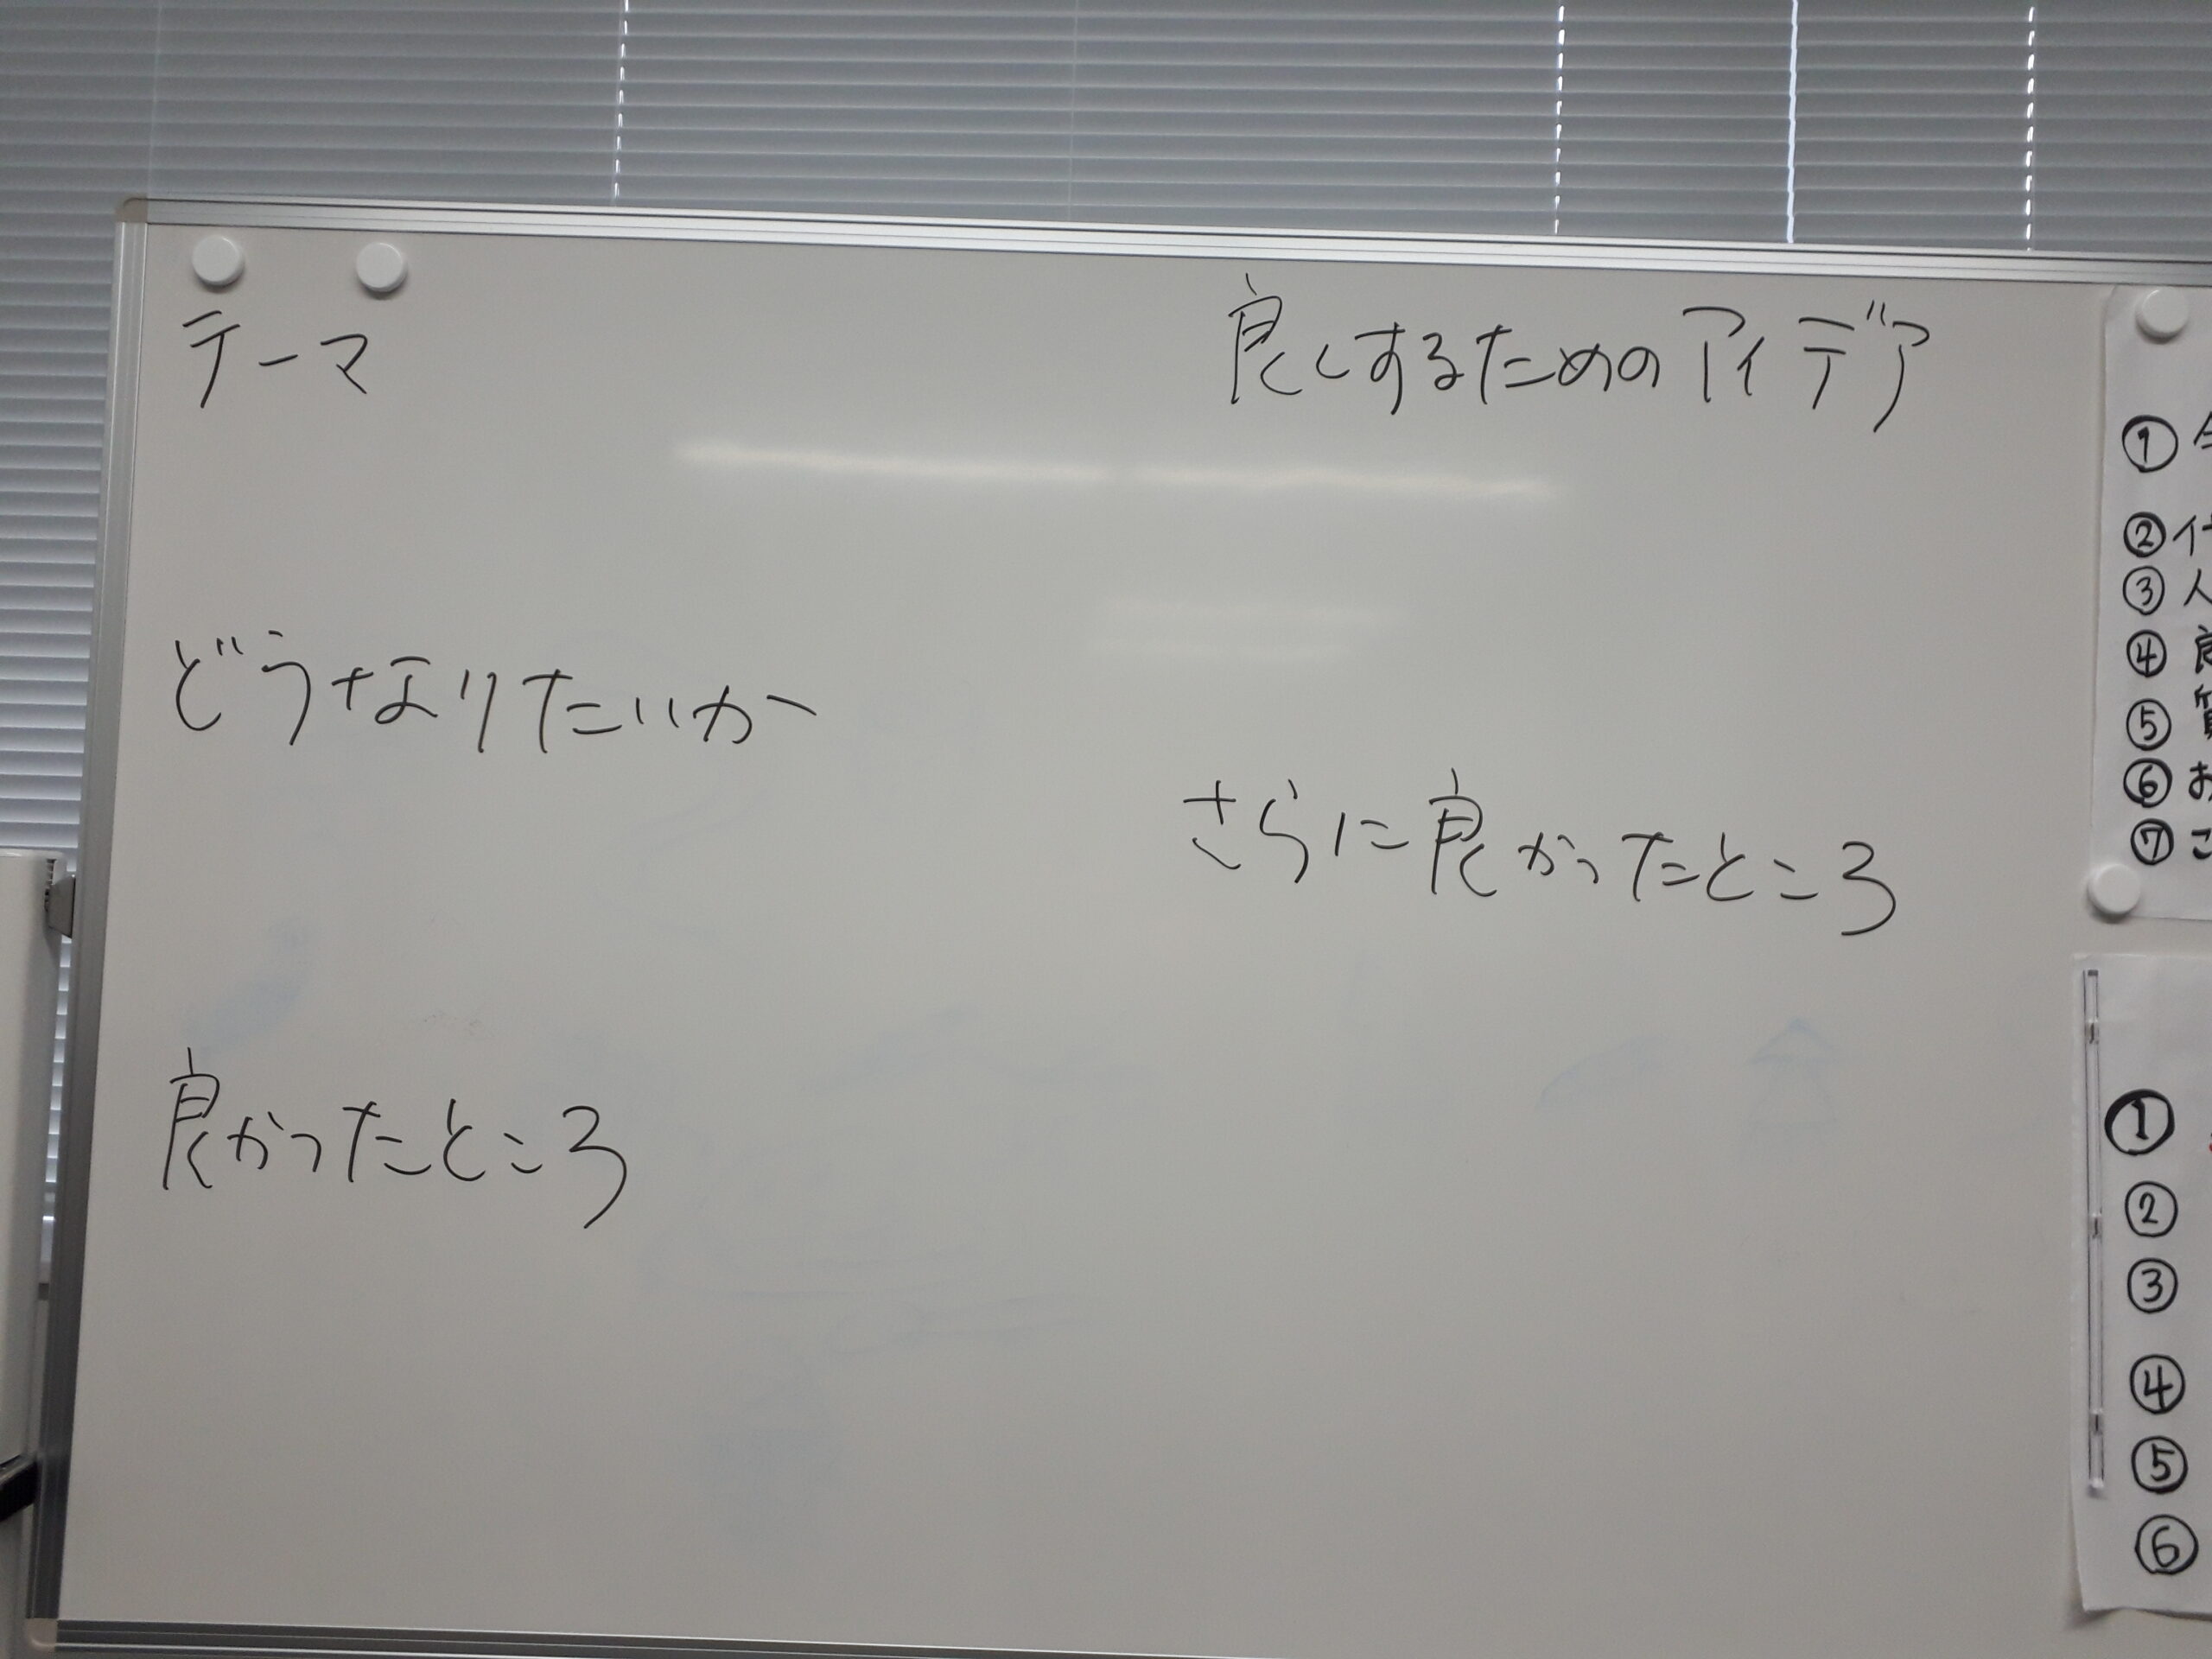 テーマ
どうなりたいか
良かったところ
良くするためのアイデア
さらに良かったところ
①
② 仕
③ 人
④ 良
⑤ 質
⑥ お
⑦ こ
①
②
③
④
⑤
⑥